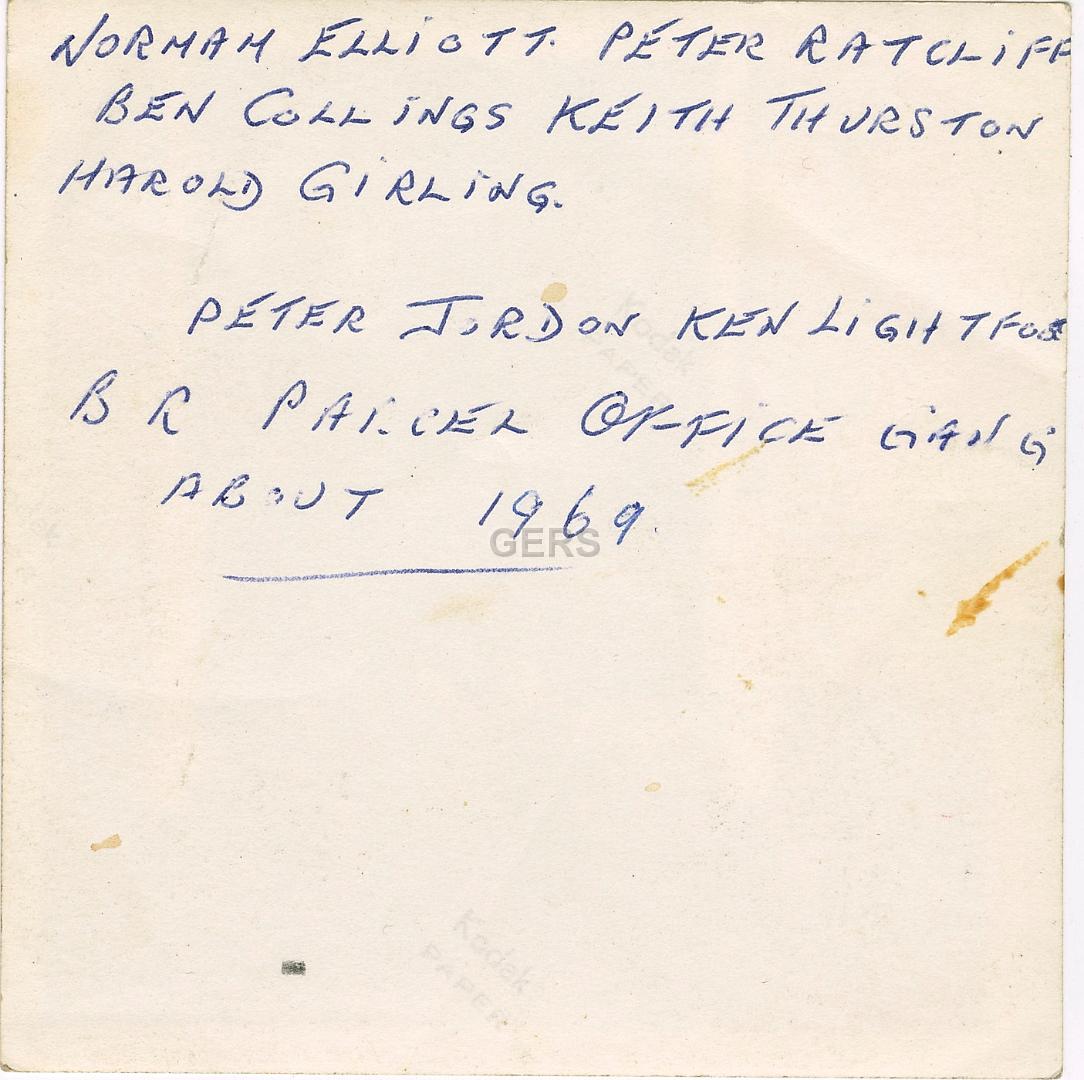 NORMAN ELLIOTT. PETER RATCLIFF
BEN COLLINGS KEITH THURSTON
HAROLD GIRLING.
PETER JORDON KEN LIGHTFOOT
B R PARCEL OFFICE GANG
ABOUT 1969.
GERS
Kodak
PAPER
Kodak
PAPER